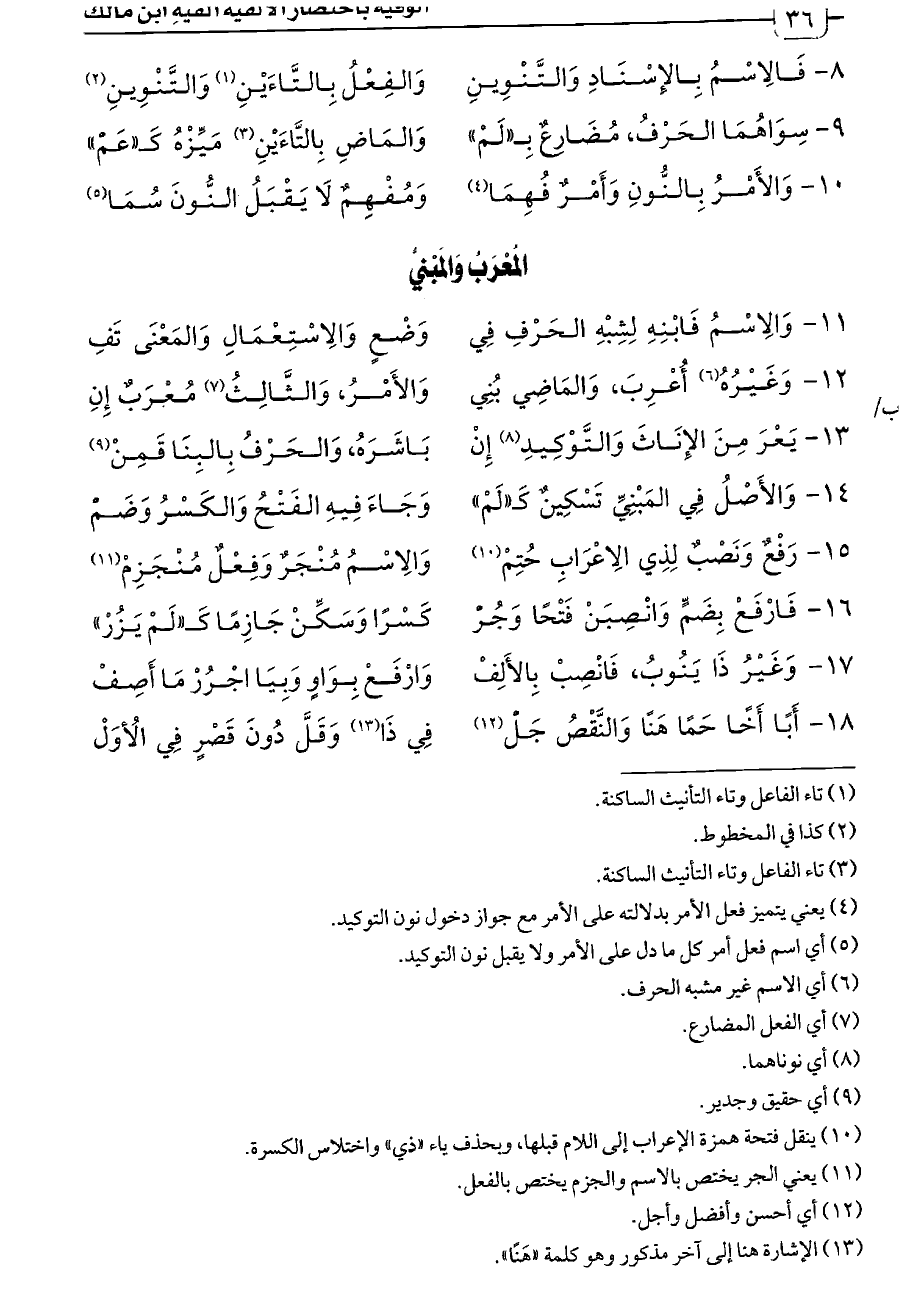 ٣٦ الوفية باختصار الألفية ألفية ابن مالك
٨- فَالِاسْمُ بِالإِسْنَادِ وَالتَّنْوِينِ وَالفِعْلُ بِالتَّاءَيْنِ(١) وَالتَّنْوِينِ(٢)
٩- سِوَاهُمَا الحَرْفُ، مُضَارِعٌ بِـ«لَمْ» وَالمَاضِ بِالتَّاءَيْنِ(٣) مَيِّزْهُ كَـ«عَمْ»
١٠- وَالأَمْرُ بِالنُّونِ وَأَمْرٌ فُهِمَا(٤) وَمُفْهِمٌ لَا يَقْبَلُ النُّونَ سُمَا(٥)
المُعْرَبُ وَالمَبْنِيُّ
١١- وَالِاسْمُ فَابْنِهِ لِشِبْهِ الحَرْفِ فِي وَضْعٍ وَالِاسْتِعْمَالِ وَالمَعْنَى تَفِ
١٢- وَغَيْرُهُ(٦) أُعْرِبَ، وَالمَاضِي بُنِي وَالأَمْرُ، وَالثَّالِثُ(٧) مُعْرَبٌ إِنِ
ب/
١٣- يَعْرَ مِنَ الإِنَاثَ وَالتَّوْكِيدِ(٨) إِنْ بَاشَرَهُ، وَالحَرْفُ بِالبِنَا قَمِنْ(٩)
١٤- وَالأَصْلُ فِي المَبْنِيِّ تَسْكِينٌ كَـ«لَمْ» وَجَاءَ فِيهِ الفَتْحُ وَالكَسْرُ وَضَمْ
١٥- رَفْعٌ وَنَصْبٌ لِذِي الِاعْرَابِ حُتِمْ(١٠) وَالِاسْمُ مُنْجَرٌ وَفِعْلٌ مُنْجَزِمْ(١١)
١٦- فَارْفَعْ بِضَمٍّ وَانْصِبَنْ فَتْحًا وَجُرْ كَسْرًا وَسَكِّنْ جَازِمًا كَـ«لَمْ يَزُرْ»
١٧- وَغَيْرُ ذَا يَنُوبُ، فَانْصِبْ بِالأَلِفْ وَارْفَعْ بِوَاوٍ وَبِيَا اجْرُرْ مَا أَصِفْ
١٨- أَبًا أَخًا حَمًا هَنًا وَالنَّقْصُ جَلْ(١٢) فِي ذَا(١٣) وَقَلَّ دُونَ قَصْرٍ فِي الُأوَلْ
(١) تاء الفاعل وتاء التأنيث الساكنة.
(٢) كذا في المخطوط.
(٣) تاء الفاعل وتاء التأنيث الساكنة.
(٤) يعني يتميز فعل الأمر بدلالته على الأمر مع جواز دخول نون التوكيد.
(٥) أي اسم فعل أمر كل ما دل على الأمر ولا يقبل نون التوكيد.
(٦) أي الاسم غير مشبه الحرف.
(٧) أي الفعل المضارع.
(٨) أي نوناهما.
(٩) أي حقيق وجدير.
(١٠) ينقل فتحة همزة الإعراب إلى اللام قبلها، وبحذف ياء «ذي» واختلاس الكسرة.
(١١) يعني الجر يختص بالاسم والجزم يختص بالفعل.
(١٢) أي أحسن وأفضل وأجل.
(١٣) الإشارة هنا إلى آخر مذكور وهو كلمة «هَنًا».